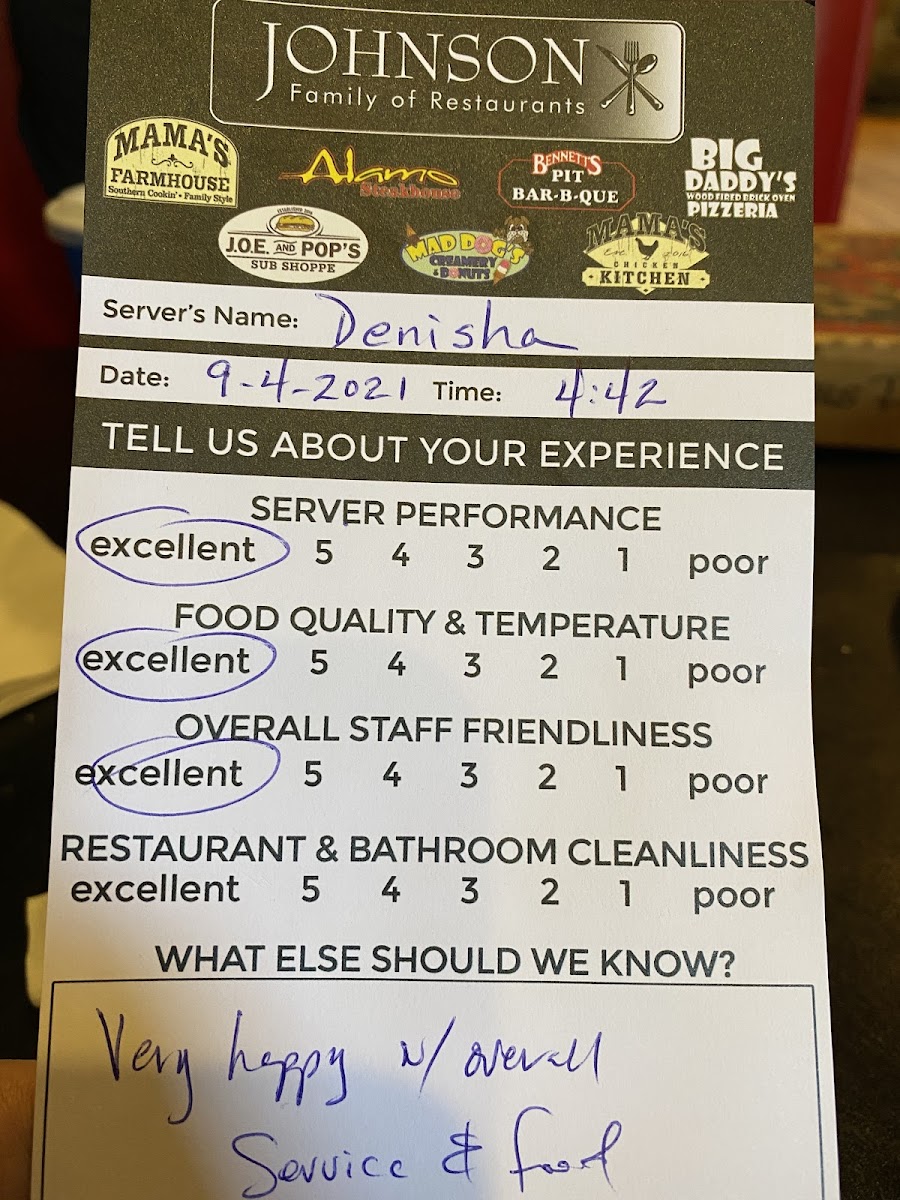 JOHNSON
Family of Restaurants
MAMA'S
FARMHOUSE
Southern Cookin' • Family Style
Alamo
Steakhouse
BENNETT'S
PIT
BAR-B-QUE
BIG
DADDY'S
WOOD FIRED BRICK OVEN
PIZZERIA
ESTABLISHED
J.O.E. AND POP'S
SUB SHOPPE
MAD DOG'S
CREAMERY
& DONUTS
MAMA'S
CHICKEN
KITCHEN
Server's Name: Denisha
Date: 9-4-2021 Time: 4:42
TELL US ABOUT YOUR EXPERIENCE
SERVER PERFORMANCE
excellent 5 4 3 2 1 poor
FOOD QUALITY & TEMPERATURE
excellent 5 4 3 2 1 poor
OVERALL STAFF FRIENDLINESS
excellent 5 4 3 2 1 poor
RESTAURANT & BATHROOM CLEANLINESS
excellent 5 4 3 2 1 poor
WHAT ELSE SHOULD WE KNOW?
Very happy w/ overall
Service & food